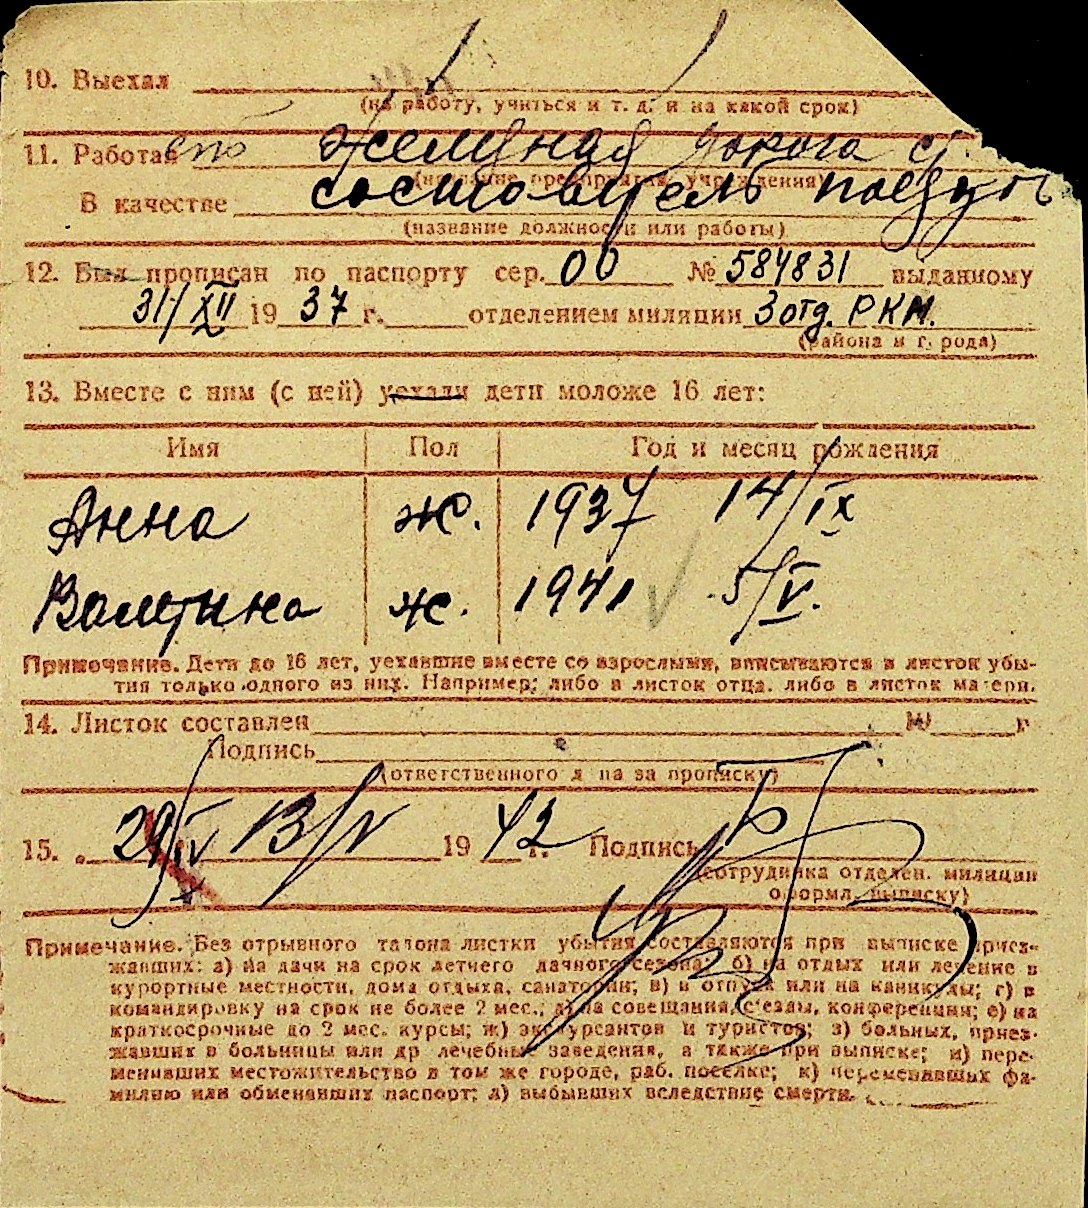 10. Выехал
(на работу, учиться и т. д. и на какой срок)
11. Работал Железная дорога ст.
(название предприятия, учреждения)
В качестве составитель поездов
(название должности или работы)
12. Был прописан по паспорту сер. 00 № 584831 выданному
31/XII 1937 г. отделением милиции 3 отд. РКМ.
(района и города)
13. Вместе с ним (с ней) уехали дети моложе 16 лет:
Имя Пол Год и месяц рождения
Анна ж. 1937 14/IX
Валентина ж. 1941 5/V.
Примечание. Дети до 16 лет, уехавшие вместе со взрослыми, вписываются в листок убы-
тия только одного из них. Например: либо в листок отца, либо в листок матери.
14. Листок составлен 19 г.
Подпись
(ответственного лица за прописку)
15. 29/IV 13/V 1942 г. Подпись
(сотрудника отделен. милиции
оформл. выписку)
Примечание. Без отрывного талона листки убытия составляются при выписке приез-
жавших: а) на дачи на срок летнего дачного сезона; б) на отдых или лечение в
курортные местности, дома отдыха, санатории; в) в отпуск или на каникулы; г) в
командировку на срок не более 2 мес.; д) на совещания, съезды, конференции; е) на
краткосрочные до 2 мес. курсы; ж) экскурсантов и туристов; з) больных, приез-
жавших в больницы или др лечебные заведения, а также при выписке; и) пере-
менивших местожительство в том же городе, раб. поселке; к) переменивших фа-
милию или обменявших паспорт; л) выбывших вследствие смерти.